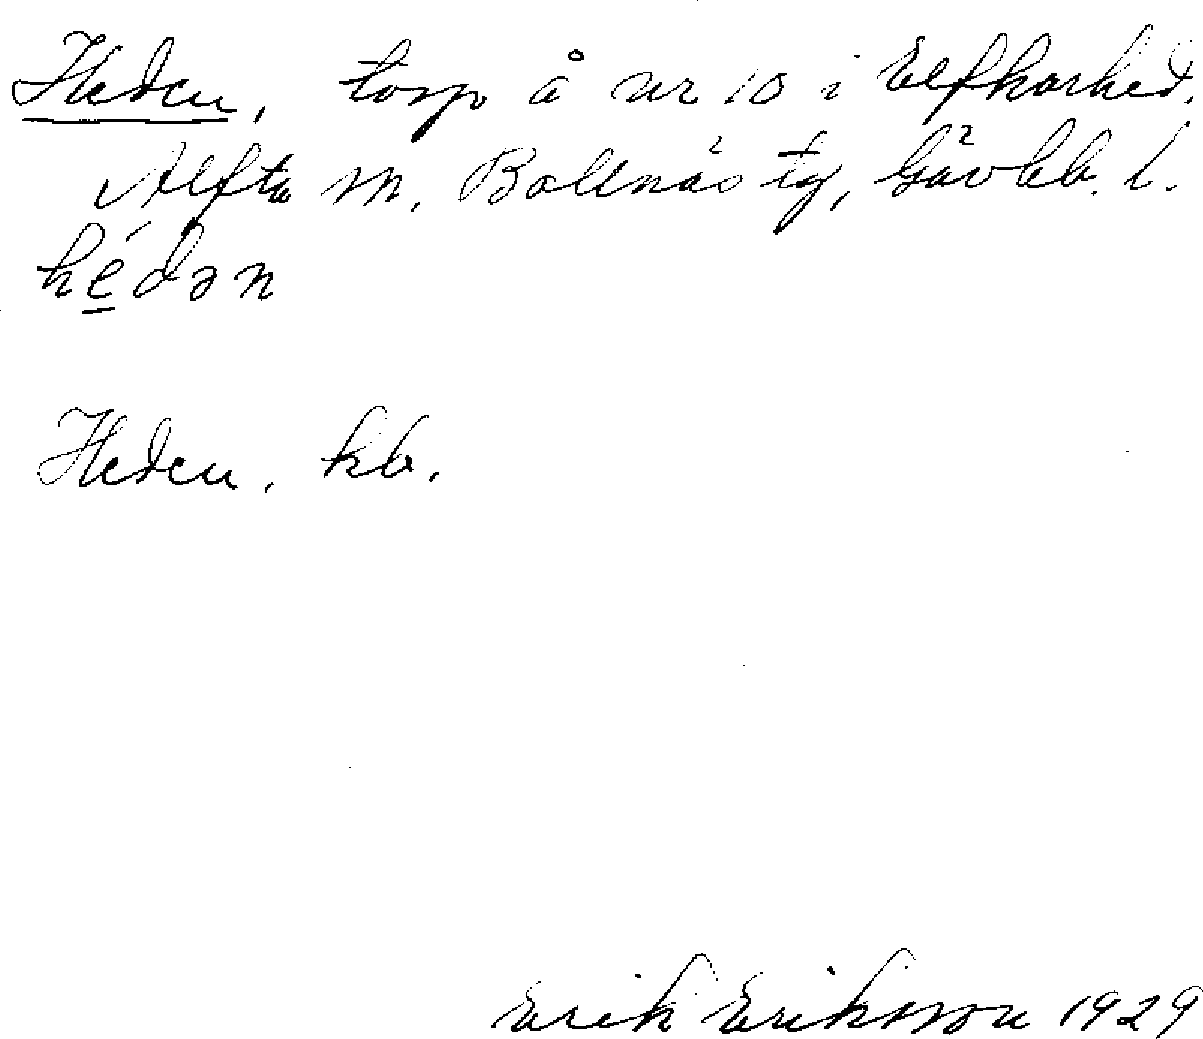 Heden, torp å nr 10 i Elfkarhed,
Alfta sn, Bollnäs tg, Gävleb. l.
hédən
Heden. kb.
Erik Eriksson 1929